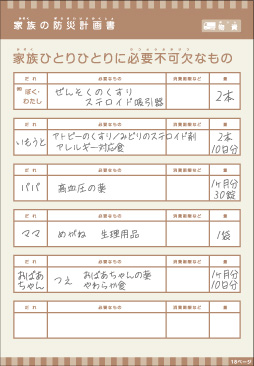 家族の防災計画書
物資
家族ひとりひとりに必要不可欠なもの
だれ 必要なもの 消費期限など 量
例 ぼく・わたし ぜんそくのくすり ステロイド吸引器 2本
だれ 必要なもの 消費期限など 量
いもうと アトピーのくすり/みどりのステロイド剤 2本
アレルギー対応食 10日分
だれ 必要なもの 消費期限など 量
パパ 高血圧の薬 1ヶ月分 30錠
だれ 必要なもの 消費期限など 量
ママ めがね 生理用品 1袋
だれ 必要なもの 消費期限など 量
おばあちゃん つえ おばあちゃんの薬 1ヶ月分
やわらか食 10日分
だれ 必要なもの 消費期限など 量
18ページ